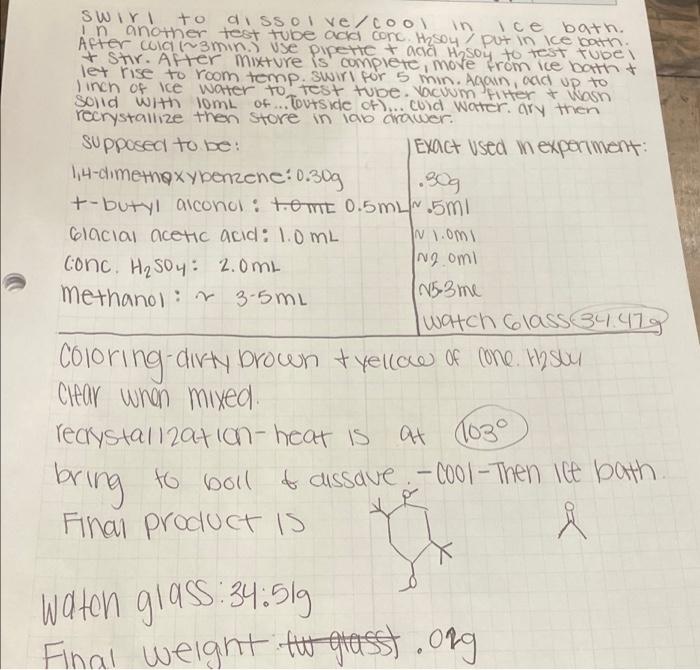 swirl to dissolve/cool in ice bath.
in another test tube add conc. H2SO4 / put in ice bath.
After cold (~3min.) use pipette + add H2SO4 to test tube 1
+ stir. After mixture is complete, move from ice bath +
let rise to room temp. swirl for 5 min. Again, add up to
1 inch of ice water to test tube. Vacuum filter + wash
solid with 10mL of... (outside of)... cold water. dry then
recrystallize then store in lab drawer.
supposed to be: Exact used in experiment:
1,4-dimethoxybenzene: 0.30g .30g
t-butyl alconol: 0.5mL ~.5ml
Glacial acetic acid: 1.0 mL ~1.0ml
conc. H2SO4: 2.0mL ~2.0ml
methanol: ~ 3-5mL
watch Glass 34.47g
coloring-dirty brown + yellow of conc. H2SO4
clear when mixed.
recrystallization-heat is at 103°
bring to boil & dissove.-cool-Then ice bath.
Final product is
watch glass: 34:51g
Final weight